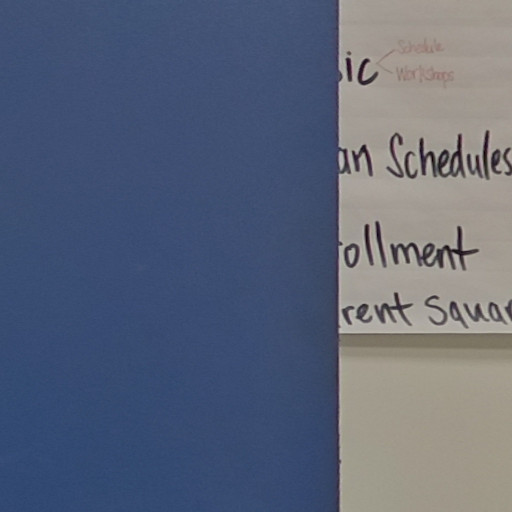 ic
Schedule
Workshops
an Schedules
ollment
rent Squar